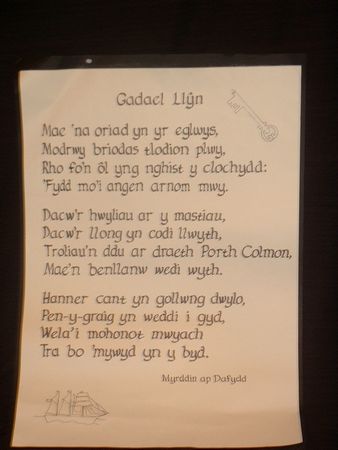 Gadael Llŷn
Mae 'na oriad yn yr eglwys,
Modrwy briodas tlodion plwy,
Rho fo'n ôl yng nghist y clochydd:
'Fydd mo'i angen arnom mwy.
Dacw'r hwyliau ar y mastiau,
Dacw'r llong yn codi llwyth,
Troliau'n ddu ar draeth Porth Colmon,
Mae'n benllanw wedi wyth.
Hanner cant yn gollwng dwylo,
Pen-y-graig yn weddi i gyd,
Wela'i mohonot mwyach
Tra bo 'mywyd yn y byd.
Myrddin ap Dafydd